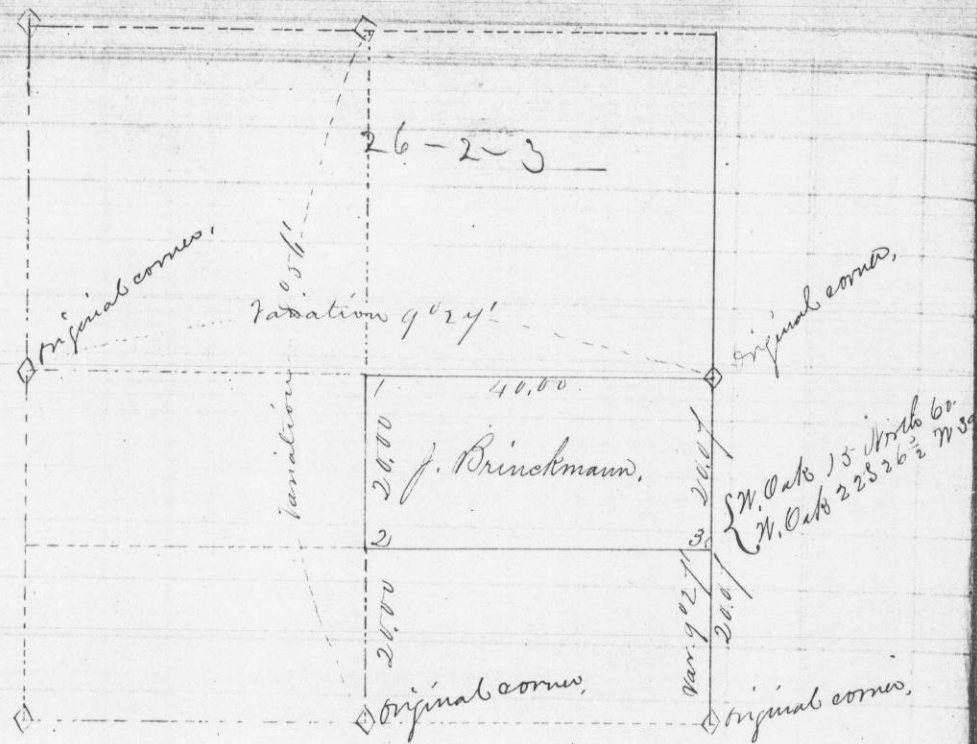 26-2-3
original corner,
Variation 9°27'
original corner,
Variation
1
40.00
20.00
J. Brinckmann,
20.01
W. Oak 15 North 60
W. Oak 22 S 26½ W
2
3
20.00
Var. 9°27'
20.01
original corner,
original corner,